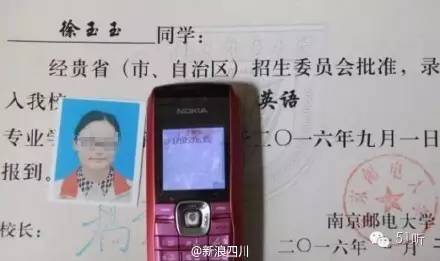 徐玉玉 同学：
经贵省（市、自治区）招生委员会批准，录
入我校 英语
专业学 二〇一六年九月一日
报到。
NOKIA
校长：
南京邮电大学
二〇一六年
@新浪四川
51听